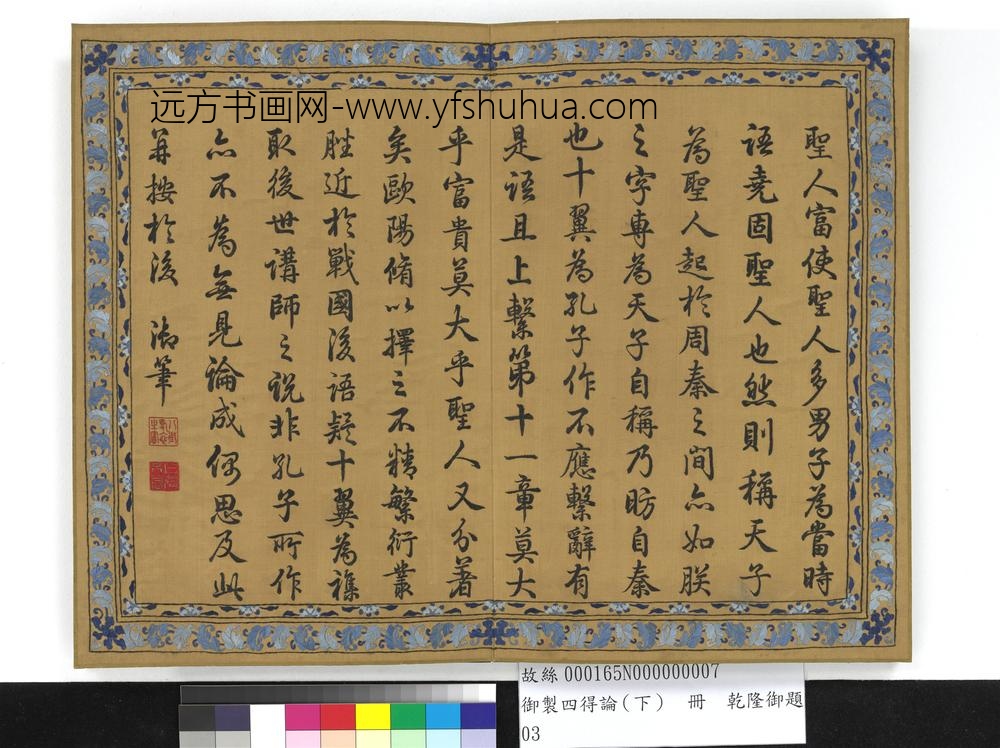 远方书画网-www.yfshuhua.com
聖人富使聖人多男子為當時
語堯固聖人也然則稱天子
為聖人起於周秦之間亦如朕
之字專為天子自稱乃昉自秦
也十翼為孔子作不應繫辭有
是語且上繫第十一章莫大
乎富貴莫大乎聖人又分著
矣歐陽脩以擇之不精繁衍叢
脞近於戰國後語疑十翼為襍
取後世講師之説非孔子所作
亦不為無見論成偶思及此
並按於後 御筆
故絲000165N000000007
御製四得論(下) 冊 乾隆御題
03